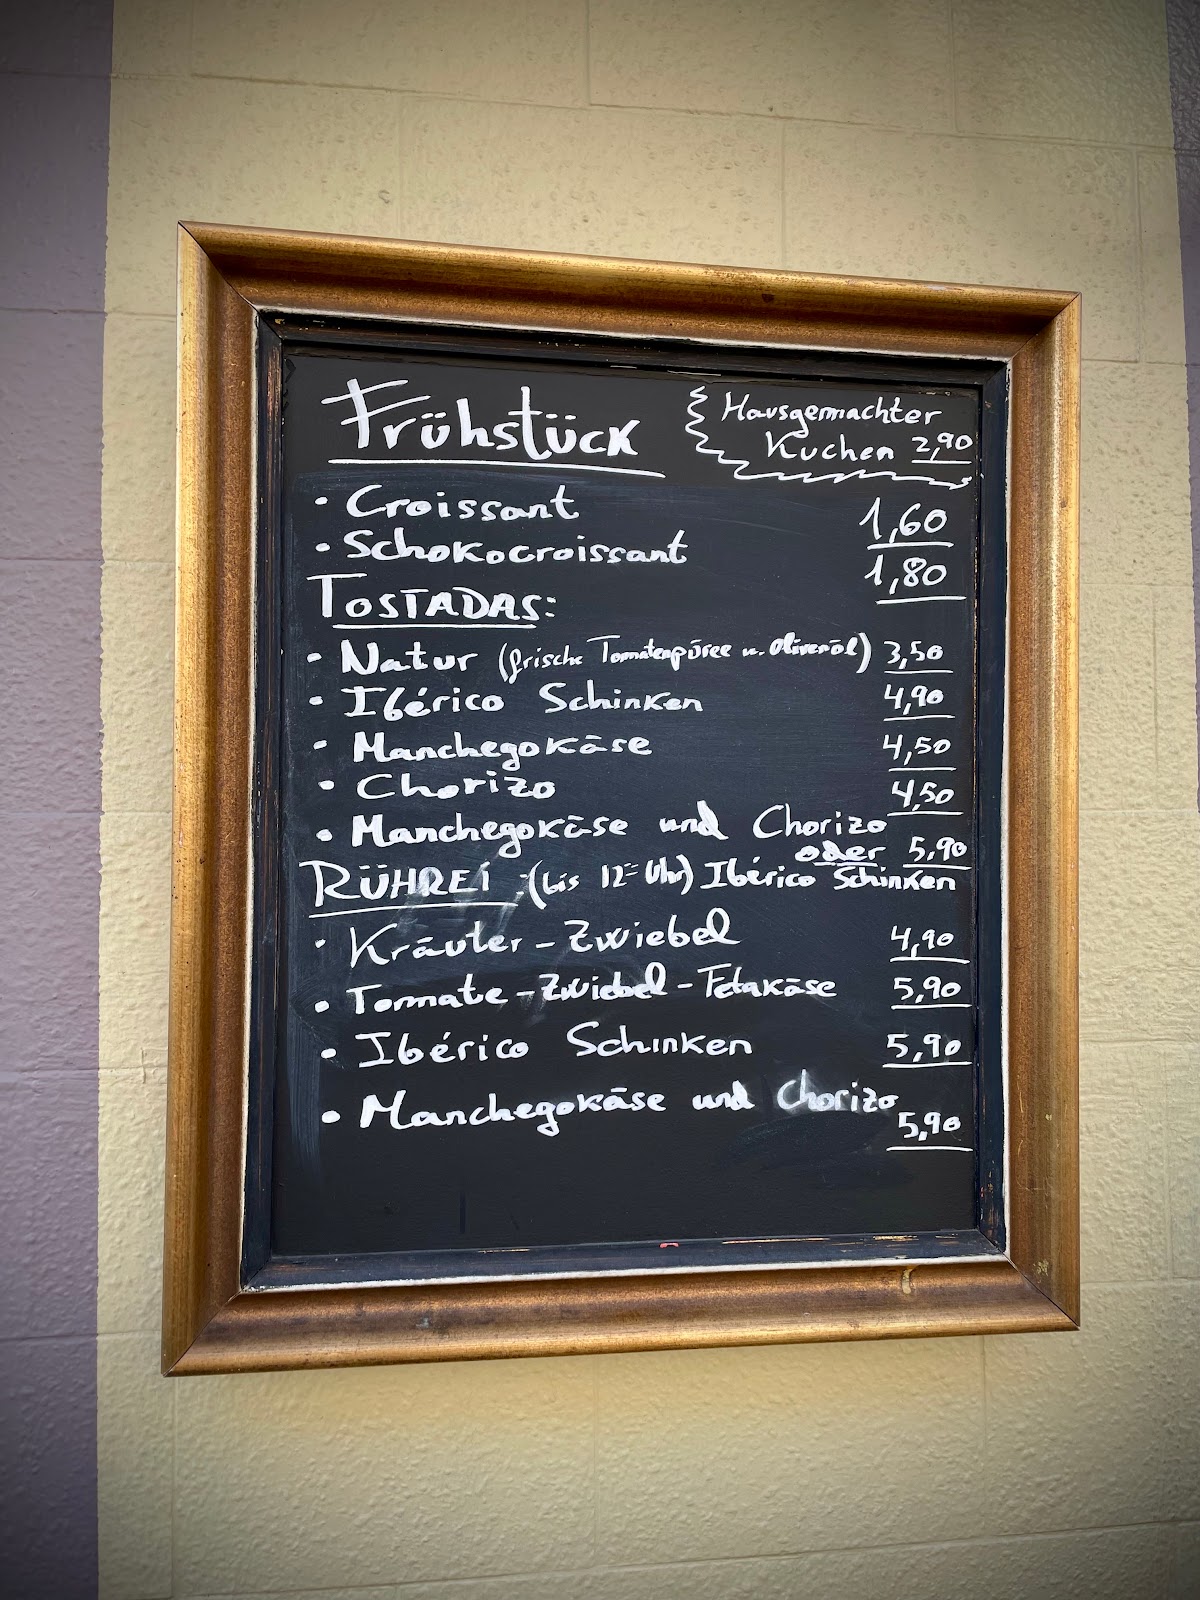 Frühstück
Hausgemachter
Kuchen 2,90
• Croissant 1,60
• Schokocroissant 1,80
TOSTADAS:
• Natur (frische Tomatenpüree u. Olivenöl) 3,50
• Ibérico Schinken 4,90
• Manchegokäse 4,50
• Chorizo 4,50
• Manchegokäse und Chorizo
oder 5,90
Ibérico Schinken
RÜHREI (bis 12 Uhr)
• Kräuter-Zwiebel 4,90
• Tomate-Zwiebel-Fetakäse 5,90
• Ibérico Schinken 5,90
• Manchegokäse und Chorizo
5,90